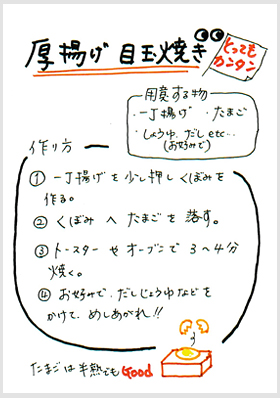 厚揚げ 目玉焼き
とっても
カンタン
用意する物
・一丁揚げ ・たまご
・しょうゆ、だし etc…
(お好みで)
作り方
① 一丁揚げを少し押しくぼみを
作る。
② くぼみへたまごを落す。
③ トースターやオーブンで3〜4分
焼く。
④ お好みで、だしじょうゆなどを
かけて、めしあがれ!!
たまごは半熟でもGood